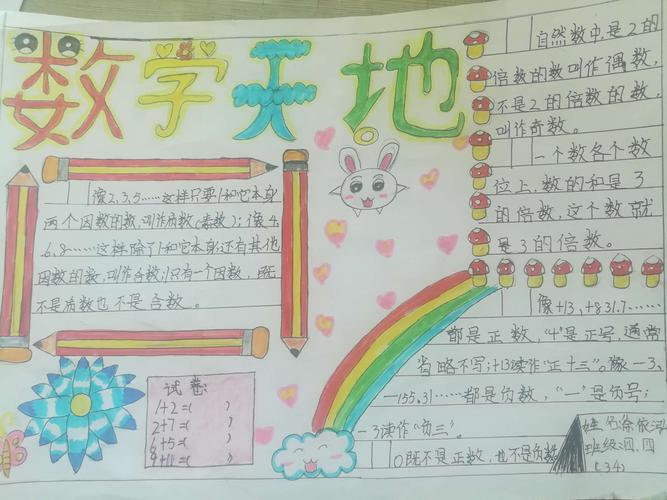 数学天地
像2,3,5……这样只要1和它本身
两个因数的数,叫作质数(素数);像4,
6,8……这样除了1和它本身还有其他
因数的数,叫作合数;1只有一个因数,既
不是质数也不是合数。
试卷:
1+2=( )
2+7=( )
6+5=( )
9+11=( )
自然数中,是2的
倍数的数叫作偶数,
不是2的倍数的数,
叫作奇数。
一个数各个数
位上,数的和是3
的倍数,这个数就
是3的倍数。
像+13,+831.7……
都是正数,“+”是正号,通常
省略不写;+13读作“正十三”。像-3、
-155.31……都是负数,“-”是负号;
-3读作“负三”。
0既不是正数,也不是负数
姓名徐依
班级:四、四
(34)